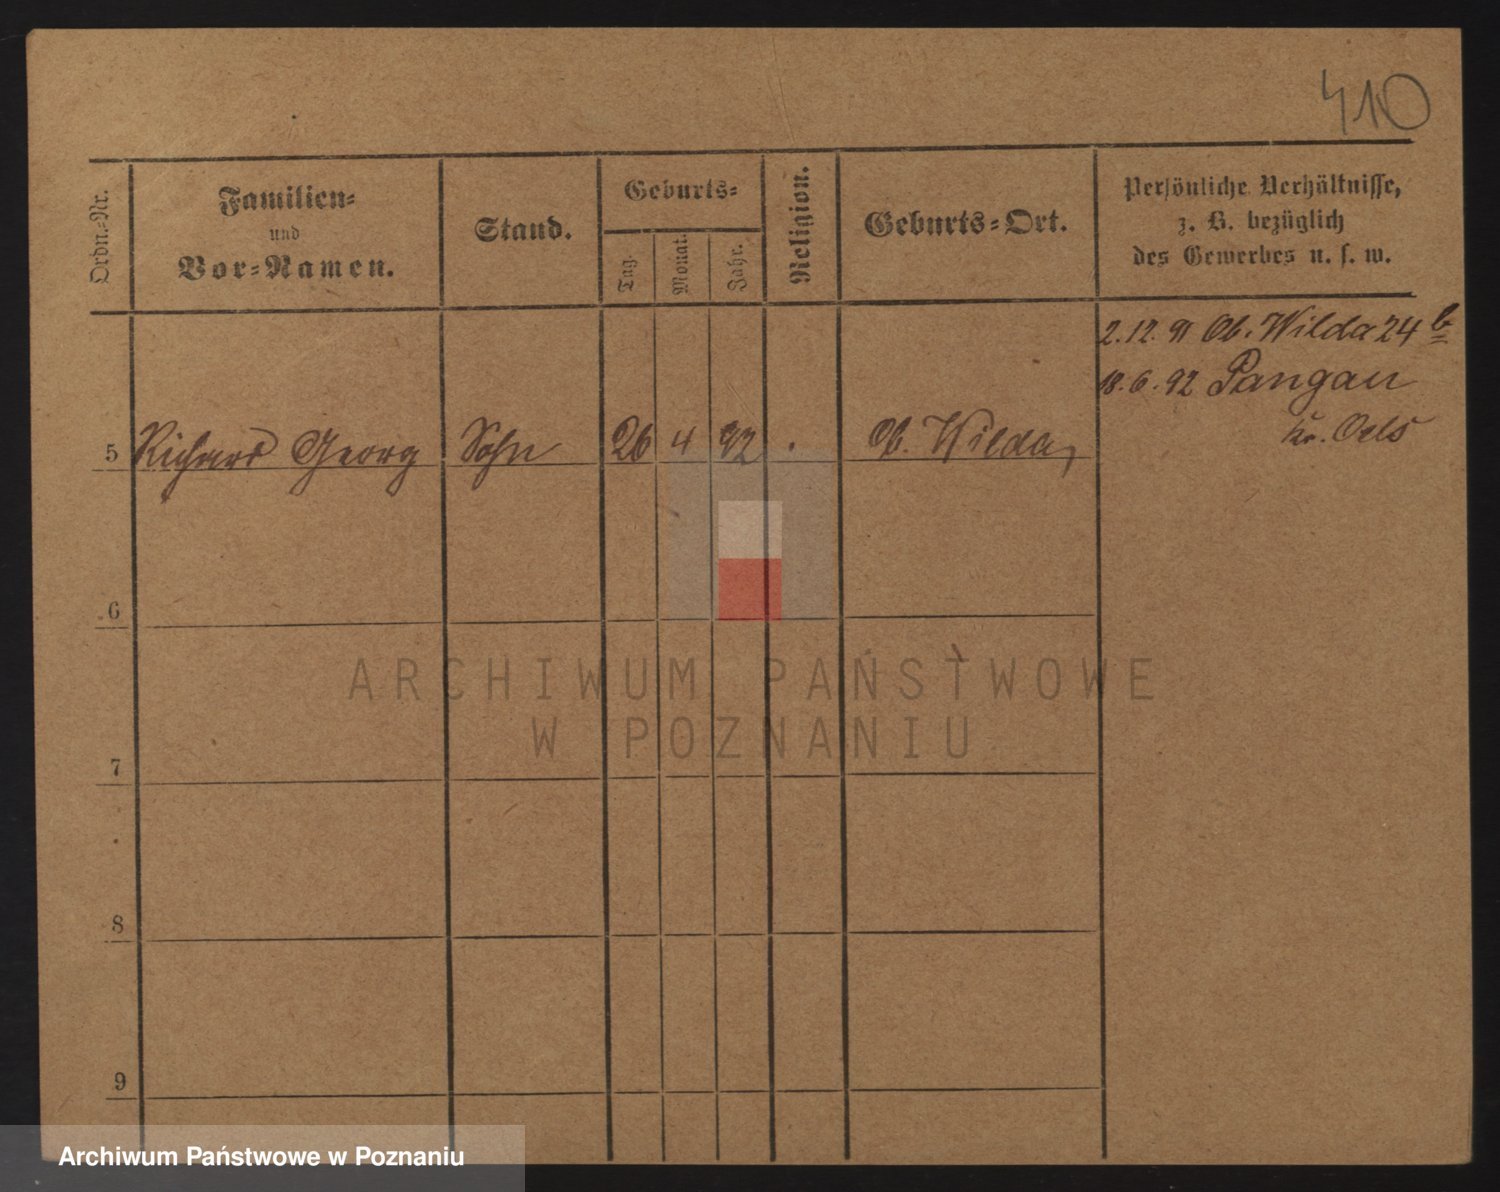 410
Ordn.-Nr.
Familien-
und
Vor-Namen.
Stand.
Geburts-
Tag.
Monat.
Jahr.
Religion.
Geburts-Ort.
Persönliche Verhältnisse,
z. B. bezüglich
des Gewerbes u. s. w.
2.12.91 Ob. Wilda 24 b
18.6.92 Pangau
Kr. Oels
5 Richard Georg Sohn 26 4 92 . Ob. Wilda,
6
7
8
9
ARCHIWUM PAŃSTWOWE
W POZNANIU
Archiwum Państwowe w Poznaniu